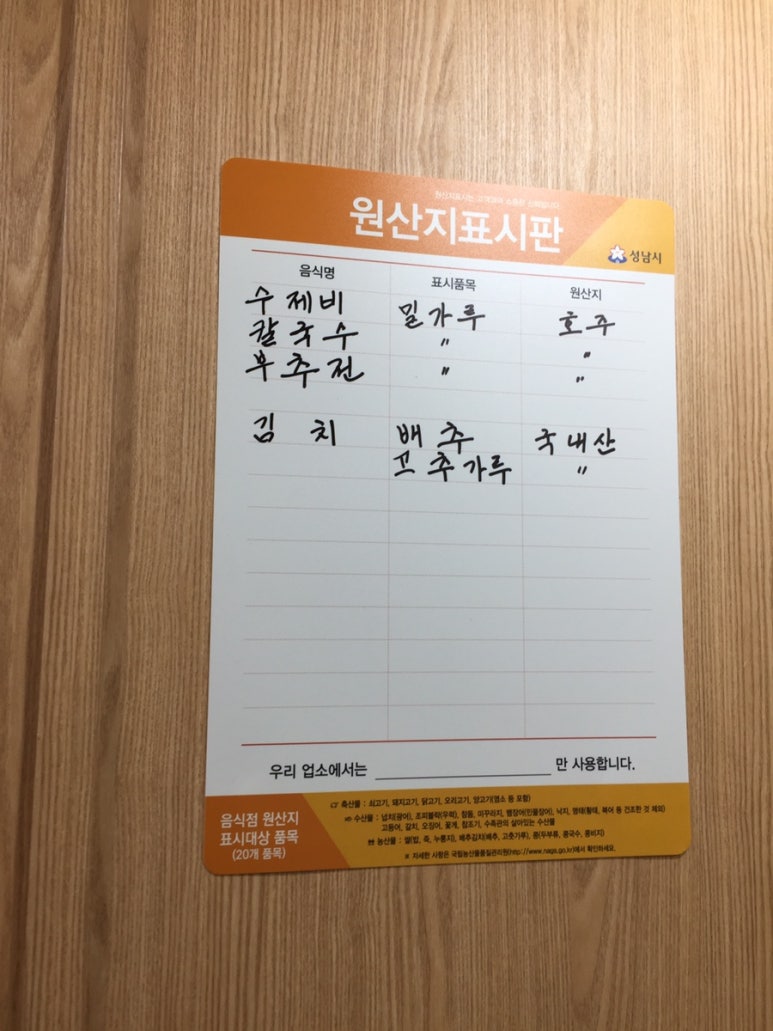 원산지표시는 고객과의 소중한 신뢰입니다
원산지표시판
성남시
음식명 표시품목 원산지
수제비 밀가루 호주
칼국수 〃 〃
부추전 〃 〃
김치 배추 국내산
고추가루 〃
우리 업소에서는 만 사용합니다.
음식점 원산지
표시대상 품목
(20개 품목)
☞ 축산물 : 쇠고기, 돼지고기, 닭고기, 오리고기, 양고기(염소 등 포함)
수산물 : 넙치(광어), 조피볼락(우럭), 참돔, 미꾸라지, 뱀장어(민물장어), 낙지, 명태(황태, 북어 등 건조한 것 제외)
고등어, 갈치, 오징어, 꽃게, 참조기, 수족관의 살아있는 수산물
농산물 : 쌀(밥, 죽, 누룽지), 배추김치(배추, 고춧가루), 콩(두부류, 콩국수, 콩비지)
※ 자세한 사항은 국립농산물품질관리원(http://www.naqs.go.kr)에서 확인하세요.